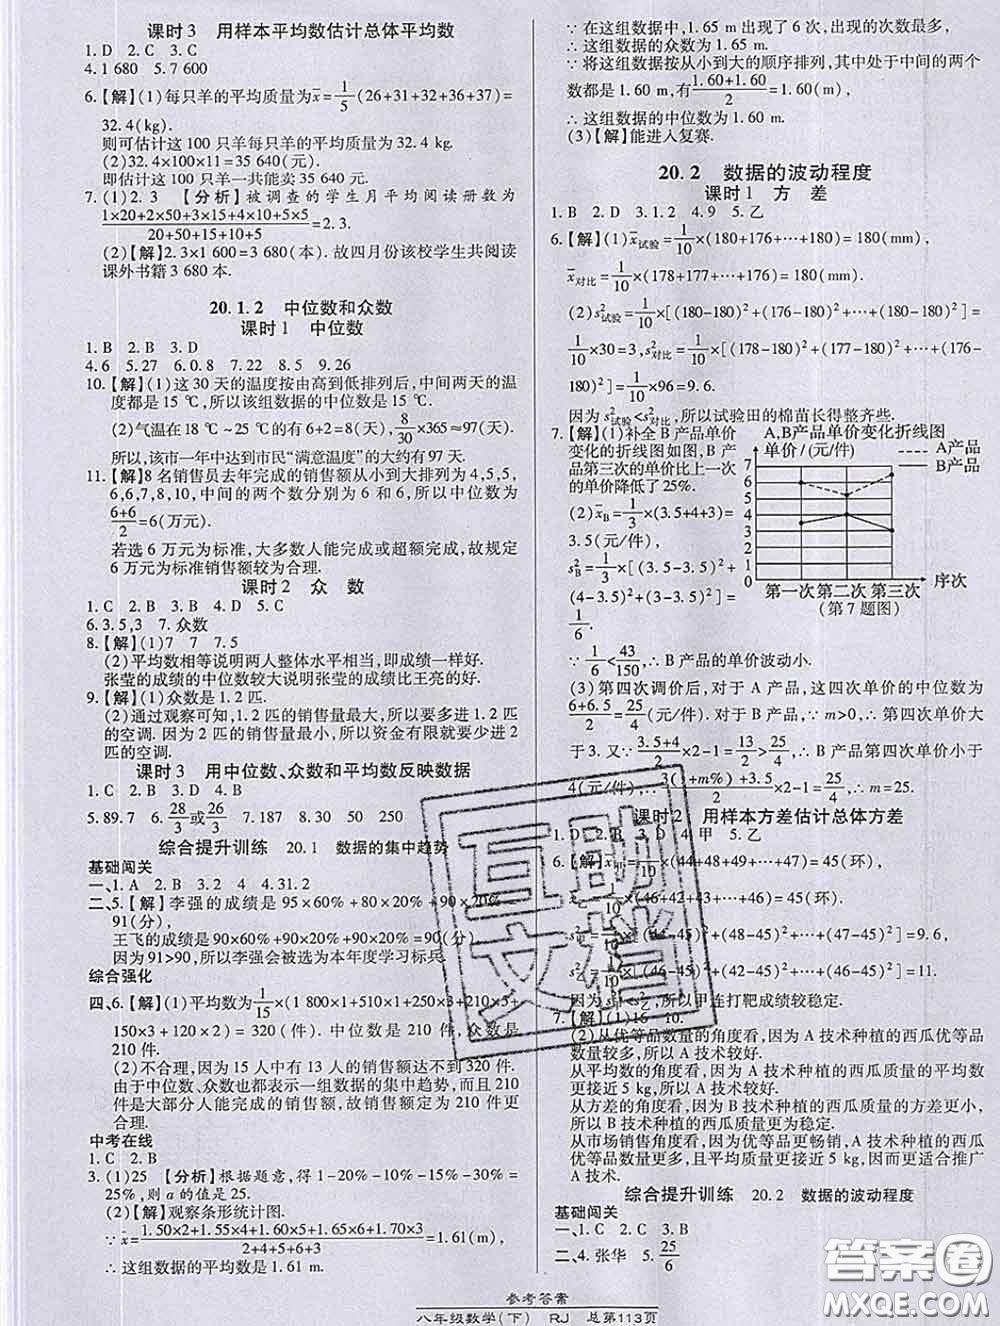 课时3 用样本平均数估计总体平均数
1. D 2. C 3. C
4. 1 680 5. 7 600
6.【解】(1)每只羊的平均质量为x̄=1/5(26+31+32+36+37)=
32.4(kg).
则可估计这 100 只羊每只羊的平均质量为 32.4 kg.
(2)32.4×100×11=35 640(元).
即估计这 100 只羊一共能卖 35 640 元.
7.(1)2.3 【分析】被调查的学生月平均阅读册数为
(1×20+2×50+3×15+4×10+5×5)/(20+50+15+10+5)=2.3.
(2)【解】2.3×1 600=3 680(本). 故四月份该校学生共阅读
课外书籍 3 680 本.
20.1.2 中位数和众数
课时1 中位数
1. B 2. B 3. D
4. 6 5. 27 6. 0.8 7. 22 8. 5 9. 26
10.【解】(1)这 30 天的温度按由高到低排列后,中间两天的温
度都是 15 ℃,所以该组数据的中位数是 15 ℃.
(2)气温在 18 ℃~25 ℃的有 6+2=8(天), 8/30×365≈97(天).
所以,该市一年中达到市民“满意温度”的大约有 97 天.
11.【解】8 名销售员去年完成的销售额从小到大排列为 4,5,5,
6,6,7,8,10, 中间的两个数分别为 6 和 6,所以中位数为
(6+6)/2=6(万元).
若选 6 万元为标准,大多数人能完成或超额完成,故规定
6 万元为标准销售额较为合理.
课时2 众 数
1. C 2. B 3. B 4. D 5. C
6. 3.5,3 7. 众数
8.【解】(1)7 7 7.5
(2)平均数相等说明两人整体水平相当,即成绩一样好.
张莹的成绩的中位数较大说明张莹的成绩比王亮的好.
9.【解】(1)众数是 1.2 匹.
(2)通过观察可知,1.2 匹的销售量最大,所以要多进 1.2 匹
的空调. 因为 2 匹的销售量最小,所以资金有限就要少进
2 匹的空调.
课时3 用中位数、众数和平均数反映数据
1. C 2. B 3. D 4. B
5. 89.7 6. 28/3或26/3 7. 187 8. 30 50 250
综合提升训练 20.1 数据的集中趋势
基础闯关
一、1. A 2. B 3. 2 4 4. 31.2
二、5.【解】李强的成绩是 95×60%+80×20%+90×20%=
91(分),
王飞的成绩是 90×60%+90×20%+90×20%=90(分)
因为 91>90,所以李强会被选为本年度学习标兵.
综合强化
四、6.【解】(1)平均数为1/15×(1 800×1+510×1+250×3+210×5+
150×3+120×2)=320(件). 中位数是 210 件, 众数是
210 件.
(2)不合理,因为 15 人中有 13 人的销售额达不到 320 件.
由于中位数、众数也都表示一组数据的集中趋势,而且 210
件是大部分人能完成的销售额,故销售额定为 210 件更
合理.
中考在线
1. C 2. B
3.(1)25 【分析】根据题意,得 1-20%-10%-15%-30%=
25%,则 a 的值是 25.
(2)【解】观察条形统计图.
∵x̄=(1.50×2+1.55×4+1.60×5+1.65×6+1.70×3)/(2+4+5+6+3)=1.61(m),
∴这组数据的平均数是 1.61 m.
∵在这组数据中,1.65 m 出现了 6 次,出现的次数最多,
∴这组数据的众数为 1.65 m.
∵将这组数据按从小到大的顺序排列,其中处于中间的两个
数都是 1.60 m,有(1.60+1.60)/2=1.60(m),
∴这组数据的中位数为 1.60 m.
(3)【解】能进入复赛.
20.2 数据的波动程度
课时1 方 差
1. B 2. D 3. 1.2 4. 9 5. 乙
6.【解】(1)x̄试验=1/10×(180+176+⋯+180)=180(mm),
x̄对比=1/10×(178+177+⋯+176)=180(mm).
(2)s²试验=1/10×[(180-180)²+(176-180)²+⋯+(180-180)²]=
1/10×30=3,s²对比=1/10×[(178-180)²+(177-180)²+⋯+(176-
180)²]=1/10×96=9.6.
因为 s²试验<s²对比,所以试验田的棉苗长得整齐些.
7.【解】(1)补全 B 产品单价
变化的折线图如图,B 产
品第三次的单价比上一次
的单价降低了 25%.
(2)x̄B=1/3×(3.5+4+3)=
3.5(元/件),
s²B=1/3×[(3-3.5)²+
(4-3.5)²+(3.5-3.5)²]=
1/6.
A,B产品单价变化折线图
单价/(元/件)
A产品
B产品
7
6
5
4
3
2
1
0
第一次第二次第三次 序次
(第7题图)
∵1/6<43/150,∴B 产品的单价波动小.
(3)第四次调价后,对于 A 产品,这四次单价的中位数为
(6+6.5)/2=25/4(元/件). 对于 B 产品,∵m>0,∴第四次单价大
于 3. 又∵(3.5+4)/2×2-1=13/2>25/4,∴B 产品第四次单价小于
4(元/件),∴(3(1+m%)+3.5)/2×2-1=25/4,∴m=25.
课时2 用样本方差估计总体方差
1. D 2. B 3. D 4. 甲 5. 乙
6.【解】x̄甲=1/10×(44+48+49+⋯+47)=45(环),
x̄乙=1/10×(46+42+43+⋯+46)=45(环).
s²甲=1/10×[(44-45)²+(48-45)²+⋯+(47-45)²]=9.6,
s²乙=1/10×[(46-45)²+(42-45)²+⋯+(46-45)²]=
因为s²甲>s²乙,所以甲连打靶成绩较稳定.
7.【解】(1)16 10.
(2)从优等品数量的角度看,因为 A 技术种植的西瓜优等品
数量较多,所以 A 技术较好.
从平均数的角度看,因为 A 技术种植的西瓜质量的平均数
更接近 5 kg,所以 A 技术较好.
从方差的角度看,因为 B 技术种植的西瓜质量的方差更小,
所以 B 技术种植的西瓜质量更为稳定.
从市场销售角度看,因为优等品更畅销,A 技术种植的西瓜
优等品数量更多,且平均质量更接近 5 kg,因而更适合推广
A 技术.
综合提升训练 20.2 数据的波动程度
基础闯关
一、1. C 2. C 3. B
二、4. 张华 5. 25/6
互助
文档
答案圈
参考答案
八年级数学(下) RJ 总第113页